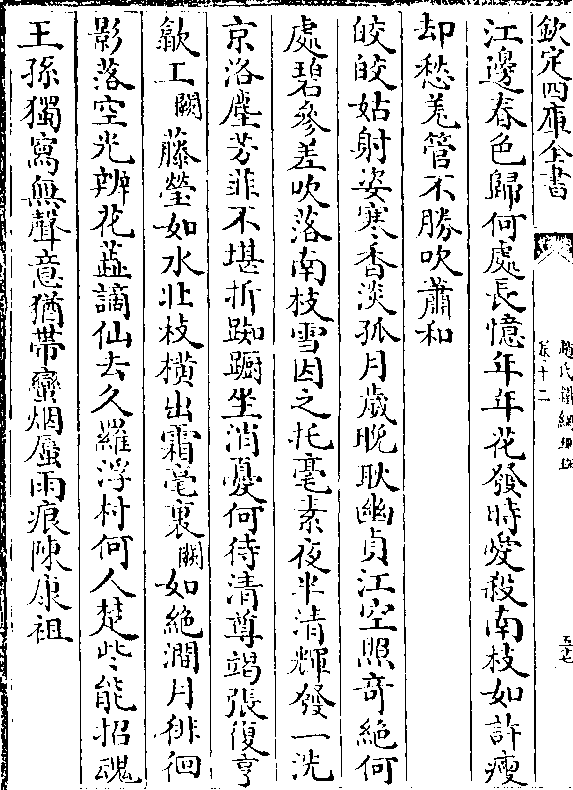 欽定四庫全書
趙氏鐵網珊瑚
卷十二
五七
江邊春色歸何處長憶年年花發時愛殺南枝如許瘦
却愁羌管不勝吹蕭和
皎皎姑射姿寒香淡孤月歲晚耿幽貞江空照奇絶何
處碧參差吹落南枝雪因之托毫素夜半清輝發一洗
京洛塵芳菲不堪折踟蹰坐消憂何待清尊竭張復亨
歙工闕藤瑩如水北枝橫出霜毫裏闕如絶澗月徘徊
影落空光辨花蕋謫仙去久羅浮村何人楚些能招魂
王孫獨寫無聲意猶帶蠻烟蜃雨痕陳康祖